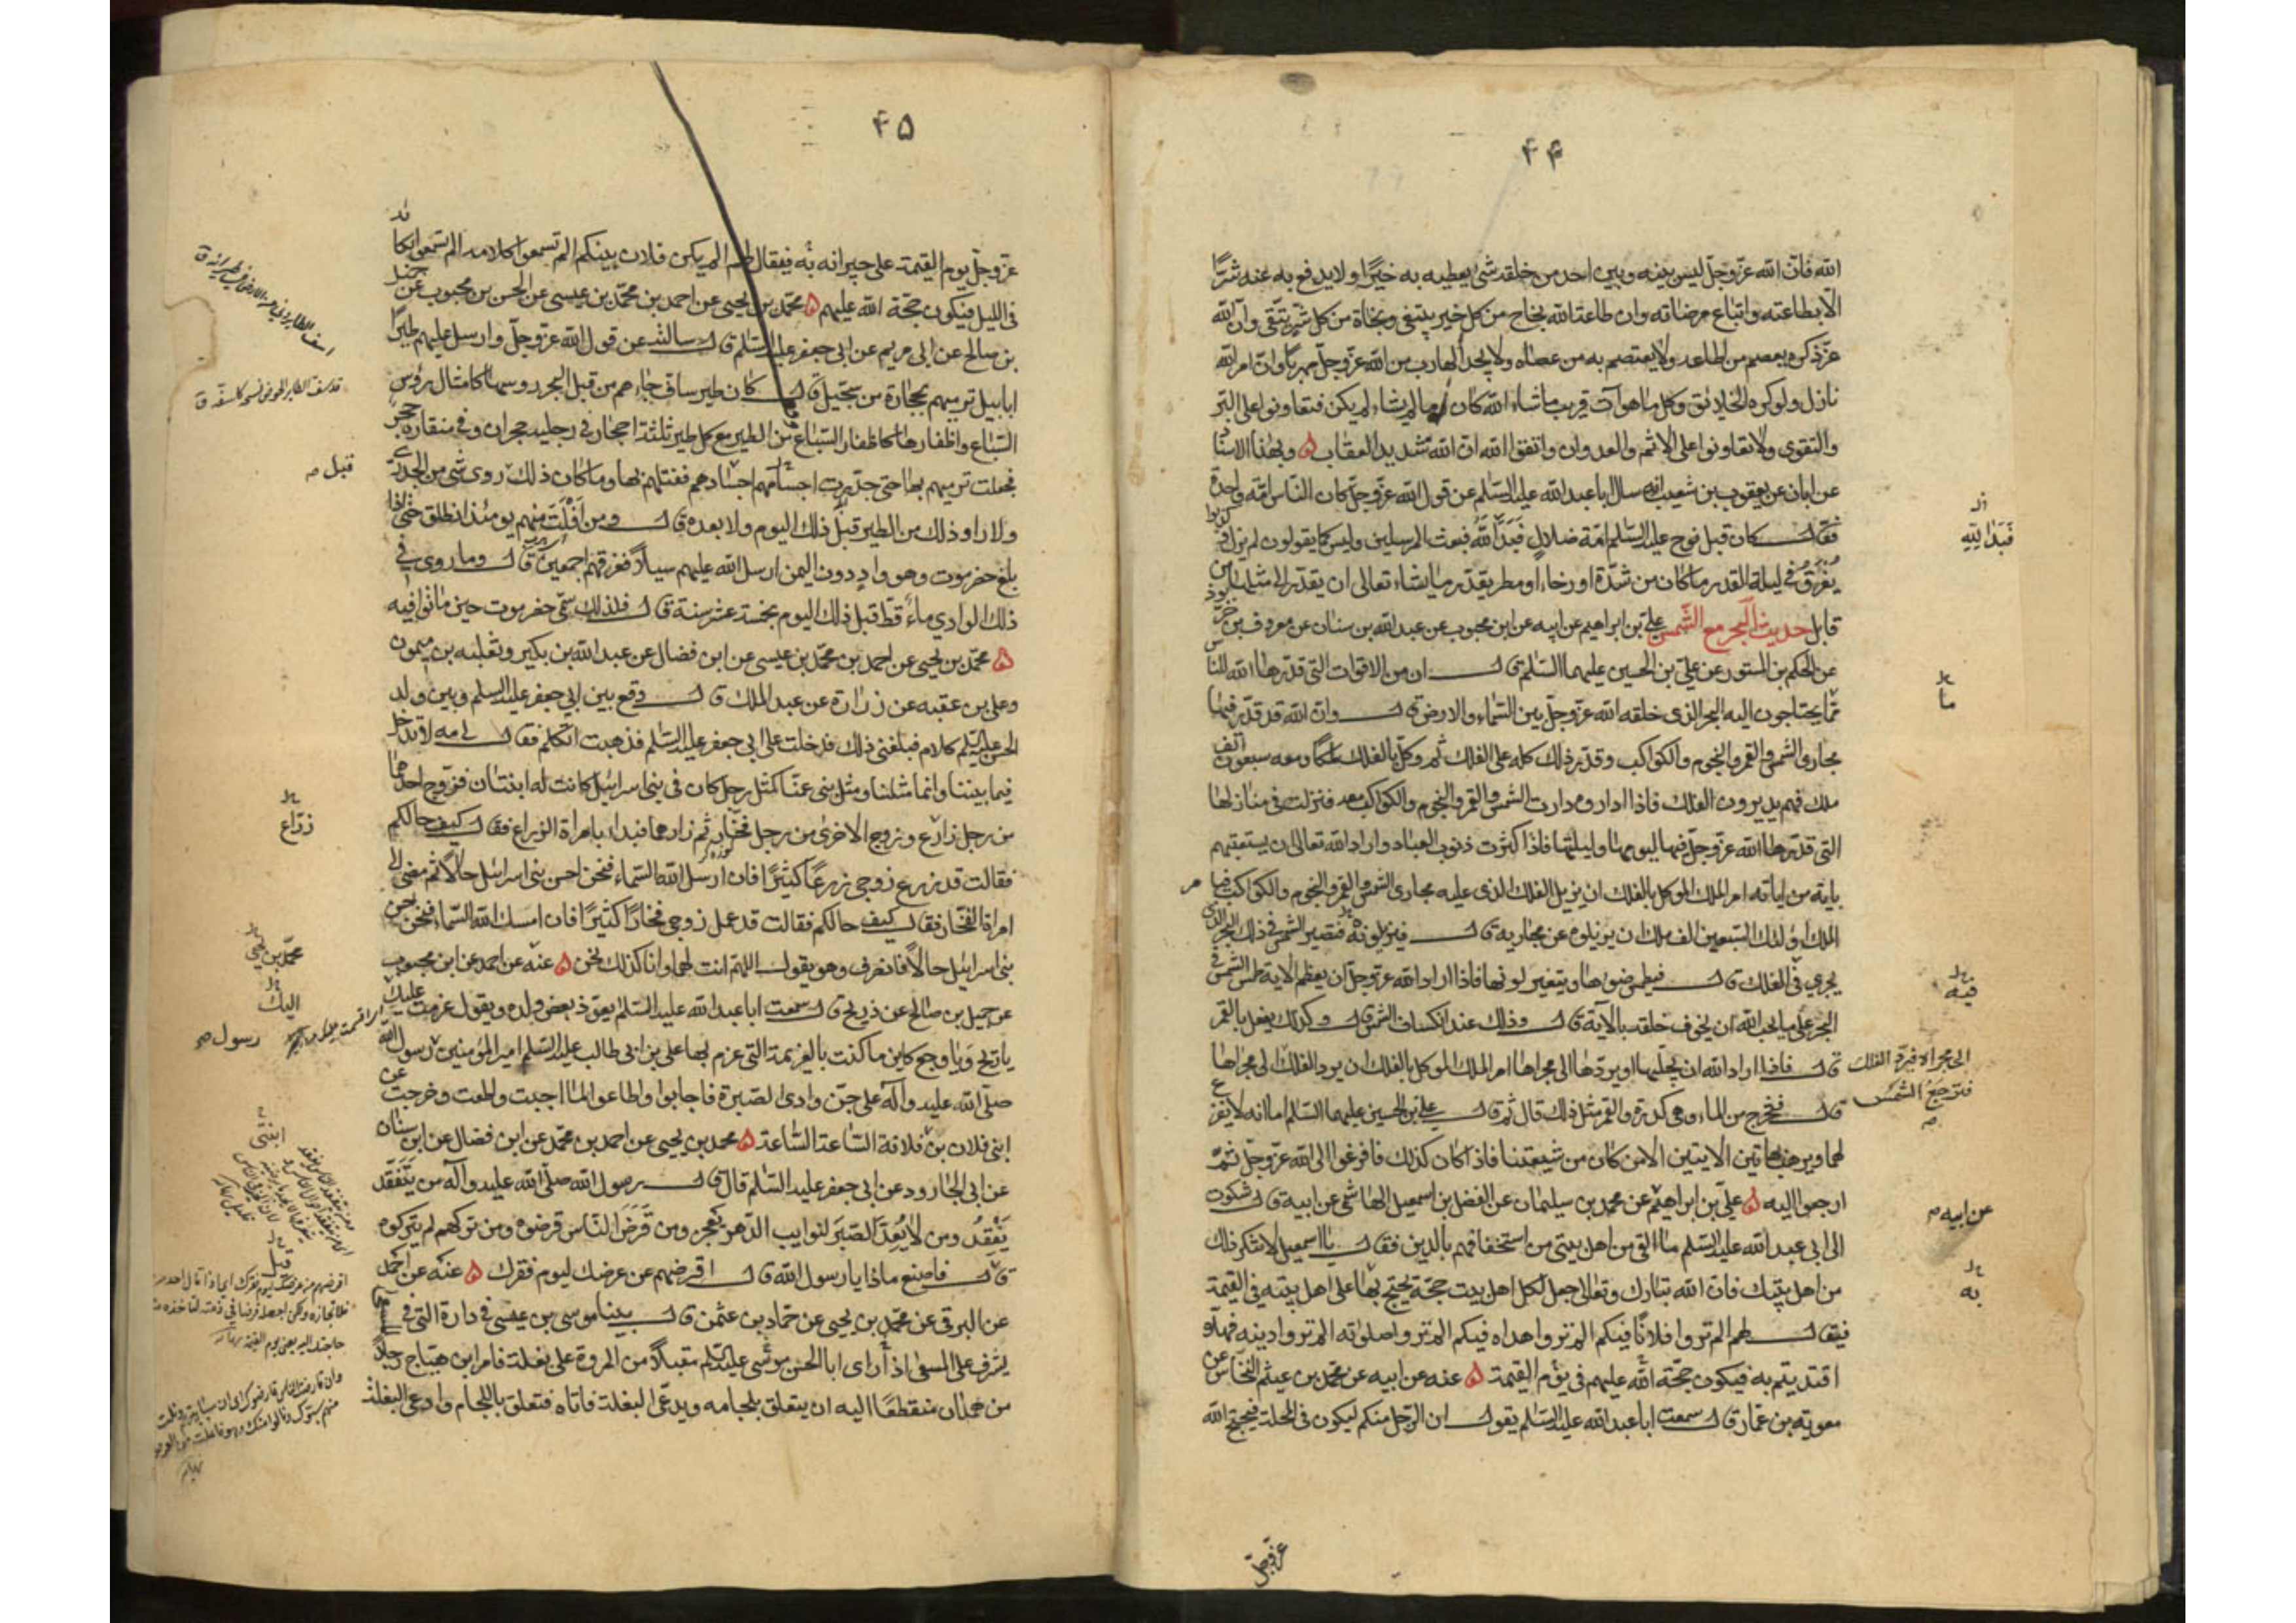 ۴۴
الله فانّ الله عزّ وجلّ ليس بينه وبين احد من خلقه شئ يعطيه به خيرًا ولا يدفع به عنه شرًّا
الّا بطاعته واتباع مرضاته وان طاعة الله نجاح من كل خير يبتغى ونجاة من كل شر يتّقى وانّ الله
عزّ ذكره يعصم من اطاعه ولا يعتصم به من عصاه ولا يجد الهارب من الله عزّ وجلّ مهربًا وانّ امر الله
نازل ولو كره الخلائق وكل ما هوآت قريب ما شاء الله كان وما لم يشاء لم يكن فتعاونوا على البرّ
والتقوى ولا تعاونوا على الاثم والعدوان واتقوا الله انّ الله شديد العقاب ۵ وبهذا الاسناد
عن ابان عن يعقوب بن شعيب انه سال ابا عبد الله عليه السّلم عن قول الله عزّ وجلّ كان الناس امّة واحدة
فقال كان قبل نوح عليه السّلم امّة ضلال فَبَدَا الله فبعث المرسلين وليس كما يقولون لم يزل وكذبوا
يُفْرَقُ فى ليلة القدر ما كان من شدّة او رخاء او مطر بقدر ما يشاء تعالى ان يقدّر الى مثلها من
قابل حديث البحر مع الشّمس علىّ بن ابراهيم عن ابيه عن ابن محبوب عن عبد الله بن سنان عن معروف بن خرّبوذ
عن الحكم بن المستور عن علىّ بن الحسين عليهما السّلم قال ان من الاقوات التى قدّرها الله للناس
ممّا يحتاجون اليه البحر الذى خلقه الله عزّ وجلّ بين السّماء والارض قال وانّ الله قد قدّر فيها
مجارى الشّمس والقمر والنجوم والكواكب وقدّر ذلك كله على الفلك ثم وكّل بالفلك ملكًا ومعه سبعون الف
ملك فهم يديرون الفلك فاذا اداروه دارت الشمس والقمر والنجوم والكواكب معه فنزلت فى منازلها
التى قدّرها الله عزّ وجلّ فيها ليومها وليلتها فاذا كثرت ذنوب العباد واراد الله تعالى ان يستعتبهم
باية من اياته امر الملك الموكل بالفلك ان يزيل الفلك الذى عليه مجارى الشمس والقمر والنجوم والكواكب فيامر
الملك اولئك السّبعين الف ملك ان يزيلوه عن مجاريه قال فيزيلونه فتصير الشمس فى ذلك البحر الذى
يجرى فى الفلك قال فيطمس ضوءها ويتغير لونها فاذا اراد الله عزّ وجلّ ان يعظم الآية طمس الشمس فى
البحر على ما يحب الله ان يخوف خلقه بالآية قال وذلك عند انكساف الشمس قال وكذلك يفعل بالقمر
قال فاذا اراد الله ان يجلّيها او يردّها الى مجراها امر الملك الموكل بالفلك ان يرد الفلك الى مجراها
قال فتخرج من الماء وهى كدرة والقمر مثل ذلك قال ثم قال علىّ بن الحسين عليهما السّلم اما انه لا يفزع
لهما ويرهب بهاتين الايتين الا من كان من شيعتنا فاذا كان كذلك فافزعوا الى الله عزّ وجلّ ثمّ
ارجعوا اليه ۵ علىّ بن ابراهيم عن محمد بن سليمان عن الفضل بن اسمعيل الهاشمى عن ابيه قال شكوت
الى ابى عبد الله عليه السّلم ما القى من اهل بيتى من استخفافهم بالدين فقال يا اسمعيل لا تنكر ذلك
من اهل بيتك فانّ الله تبارك وتعالى جعل لكل اهل بيت حجّة يحتج بها على اهل بيته فى القيمة
فيقال لهم الم تروا فلانًا فيكم الم تروا هداه فيكم الم تروا صلوته الم تروا دينه فهلّا
اقتديتم به فيكون حجّة الله عليهم فى يوم القيمة ۵ عنه عن ابيه عن محمد بن عيثم النخّاس عن
معوية بن عمّار قال سمعت ابا عبد الله عليه السّلم يقول ان الرّجل منكم ليكون فى المحلة فيحتج الله
فَبَدَا لِلّهِ
ما
فيه
الى مجراه فيردّ الفلك
فترجعُ الشمس
عن ابيه م
به
عزّ وجلّ
۴۵
عزّ وجلّ يوم القيمة على جيرانه به فيقال لهم الم يكن فلان بينكم الم تسمعوا كلامه الم تسمعوا بكاءه
فى الليل فيكون حجّة الله عليهم ۵ محمّد بن يحيى عن احمد بن محمّد بن عيسى عن الحسن بن محبوب عن جميل
بن صالح عن ابى مريم عن ابى جعفر عليه السّلم قال سالته عن قول الله عزّ وجلّ وارسل عليهم طيرًا
ابابيل ترميهم بحجارة من سجّيل قال كان طير ساف جاءهم من قبل البحر روسها كامثال رؤس
السّباع واظفارها كاظفار السّباع من الطير مع كل طير ثلثة احجار فى رجليه حجران وفى منقاره حجر
فجعلت ترميهم بها حتى جدّرت اجسامهم اجسادهم فقتلهم بها وما كان ذلك روى شئ من الجدرى
ولا راو ذلك من الطير قبل ذلك اليوم ولا بعده قال ومن اَفْلَتَ منهم يومئذ انطلق حتى اذا
بلغ حضرموت وهو وادٍ دون اليمن ارسل الله عليهم سيلًا فغرقهم اجمعين قال وما روى فى
ذلك الوادى ماءٌ قطّ قبل ذلك اليوم بخمسة عشر سنة قال فلذلك سمّى حضرموت حين ماتوا فيه
۵ محمّد بن يحيى عن احمد بن محمّد بن عيسى عن ابن فضال عن عبد الله بن بكير وثعلبه بن ميمون
وعلى بن عقبه عن زرارة عن عبد الملك قال وقع بين ابى جعفر عليه السلم وبين ولد
الحسن عليه السّلم كلام فبلغنى ذلك فدخلت على ابى جعفر عليه السّلم فذهبت اتكلم فقال لى مه لا تدخل
فيما بيننا وانما مثلنا ومثل بنى عمّنا كمثل رجل كان فى بنى اسرائيل كانت له ابنتان فزوّج احداهما
من رجل زارع وزوج الاخرى من رجل فخّار ثم زارهما فبداء بامراة الزراع فقال كيف حالكم
فقالت قد زرع زوجى زرعًا كثيرًا فان ارسل الله السّماء فنحن احسن بنى اسرائيل حالًا ثم مضى الى
امراة الفخّار فقال كيف حالكم فقالت قد عمل زوجى فخارًا كثيرًا فان امسك الله السّماء فنحن احسن
بنى اسرائيل حالًا فانصرف وهو يقول اللهمّ انت لهما وانا كذلك نحن ۵ عنه عن احمد عن ابن محبوب
عن جميل بن صالح عن ذريح قال سمعت ابا عبد الله عليه السّلم يعوّذ بعض ولده ويقول عزمت عليك
يا ريح ويا وجع كاين ما كنت بالعزيمة التى عزم بها على بن ابى طالب عليه السّلم امير المؤمنين رسول الله
صلّى الله عليه وآله على جنّ وادى الصّبرة فاجابوا واطاعوا لمّا اجبت واطعت وخرجت عن
ابنى فلان بن فلانة السّاعة السّاعة ۵ محمد بن يحيى عن احمد بن محمّد عن ابن فضال عن ابن سنان
عن ابى الجارود عن ابى جعفر عليه السّلم قال قال رسول الله صلّى الله عليه وآله من يَتَفَقَّد
يَفْقِدُ ومن لا يُعِدَّ الصّبَرَ لنوايب الدّهر يَعجِز ومن قَرَضَ النّاس قرضوه ومن تركهم لم يتركوه
قال فاصنع ماذا يا رسول الله قال اقرضهم من عرضك ليوم فقرك ۵ عنه عن احمد
عن البرقى عن محمّد بن يحيى عن حمّاد بن عثمن قال بينا موسى بن عيسى فى دارة التى فى المسعى
يشرف على المسعى اذ رأى ابا الحسن موسى عليه السّلم مقبلًا من المروة على بغلة فامر ابن هيّاج رجلًا
من همدان منقطعًا اليه ان يتعلق بلجامه ويدعى البغلة فاتاه فتعلق باللجام وادعى البغلة
قبل م
زرّاع
محمّد بن يحيى
اليك
رسول م
ابنتى
قبل